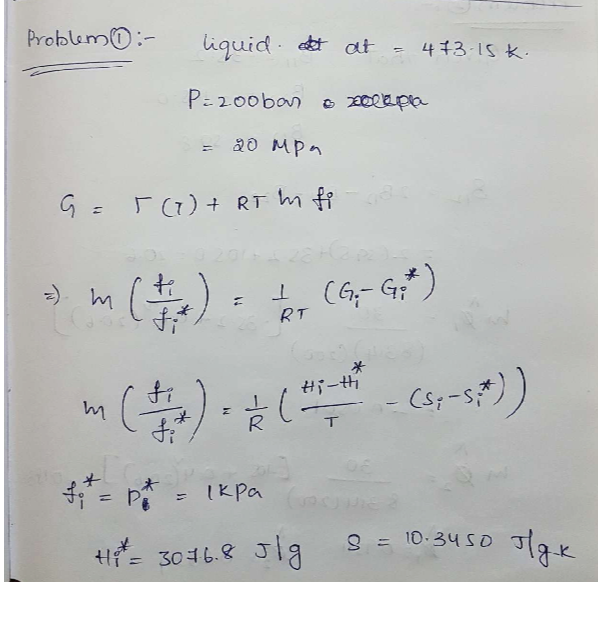 Problem ① :- liquid at = 473.15 K.
P = 200 bar
= 20 MPa
G = Γ(T) + RT ln fi
⇒ ln (fi / fi*) = 1/RT (Gi - Gi*)
ln (fi / fi*) = 1/R (Hi - Hi* / T - (Si - Si*))
fi* = Pi* = 1 KPa
Hi* = 3076.8 J/g S = 10.3450 J/g.K